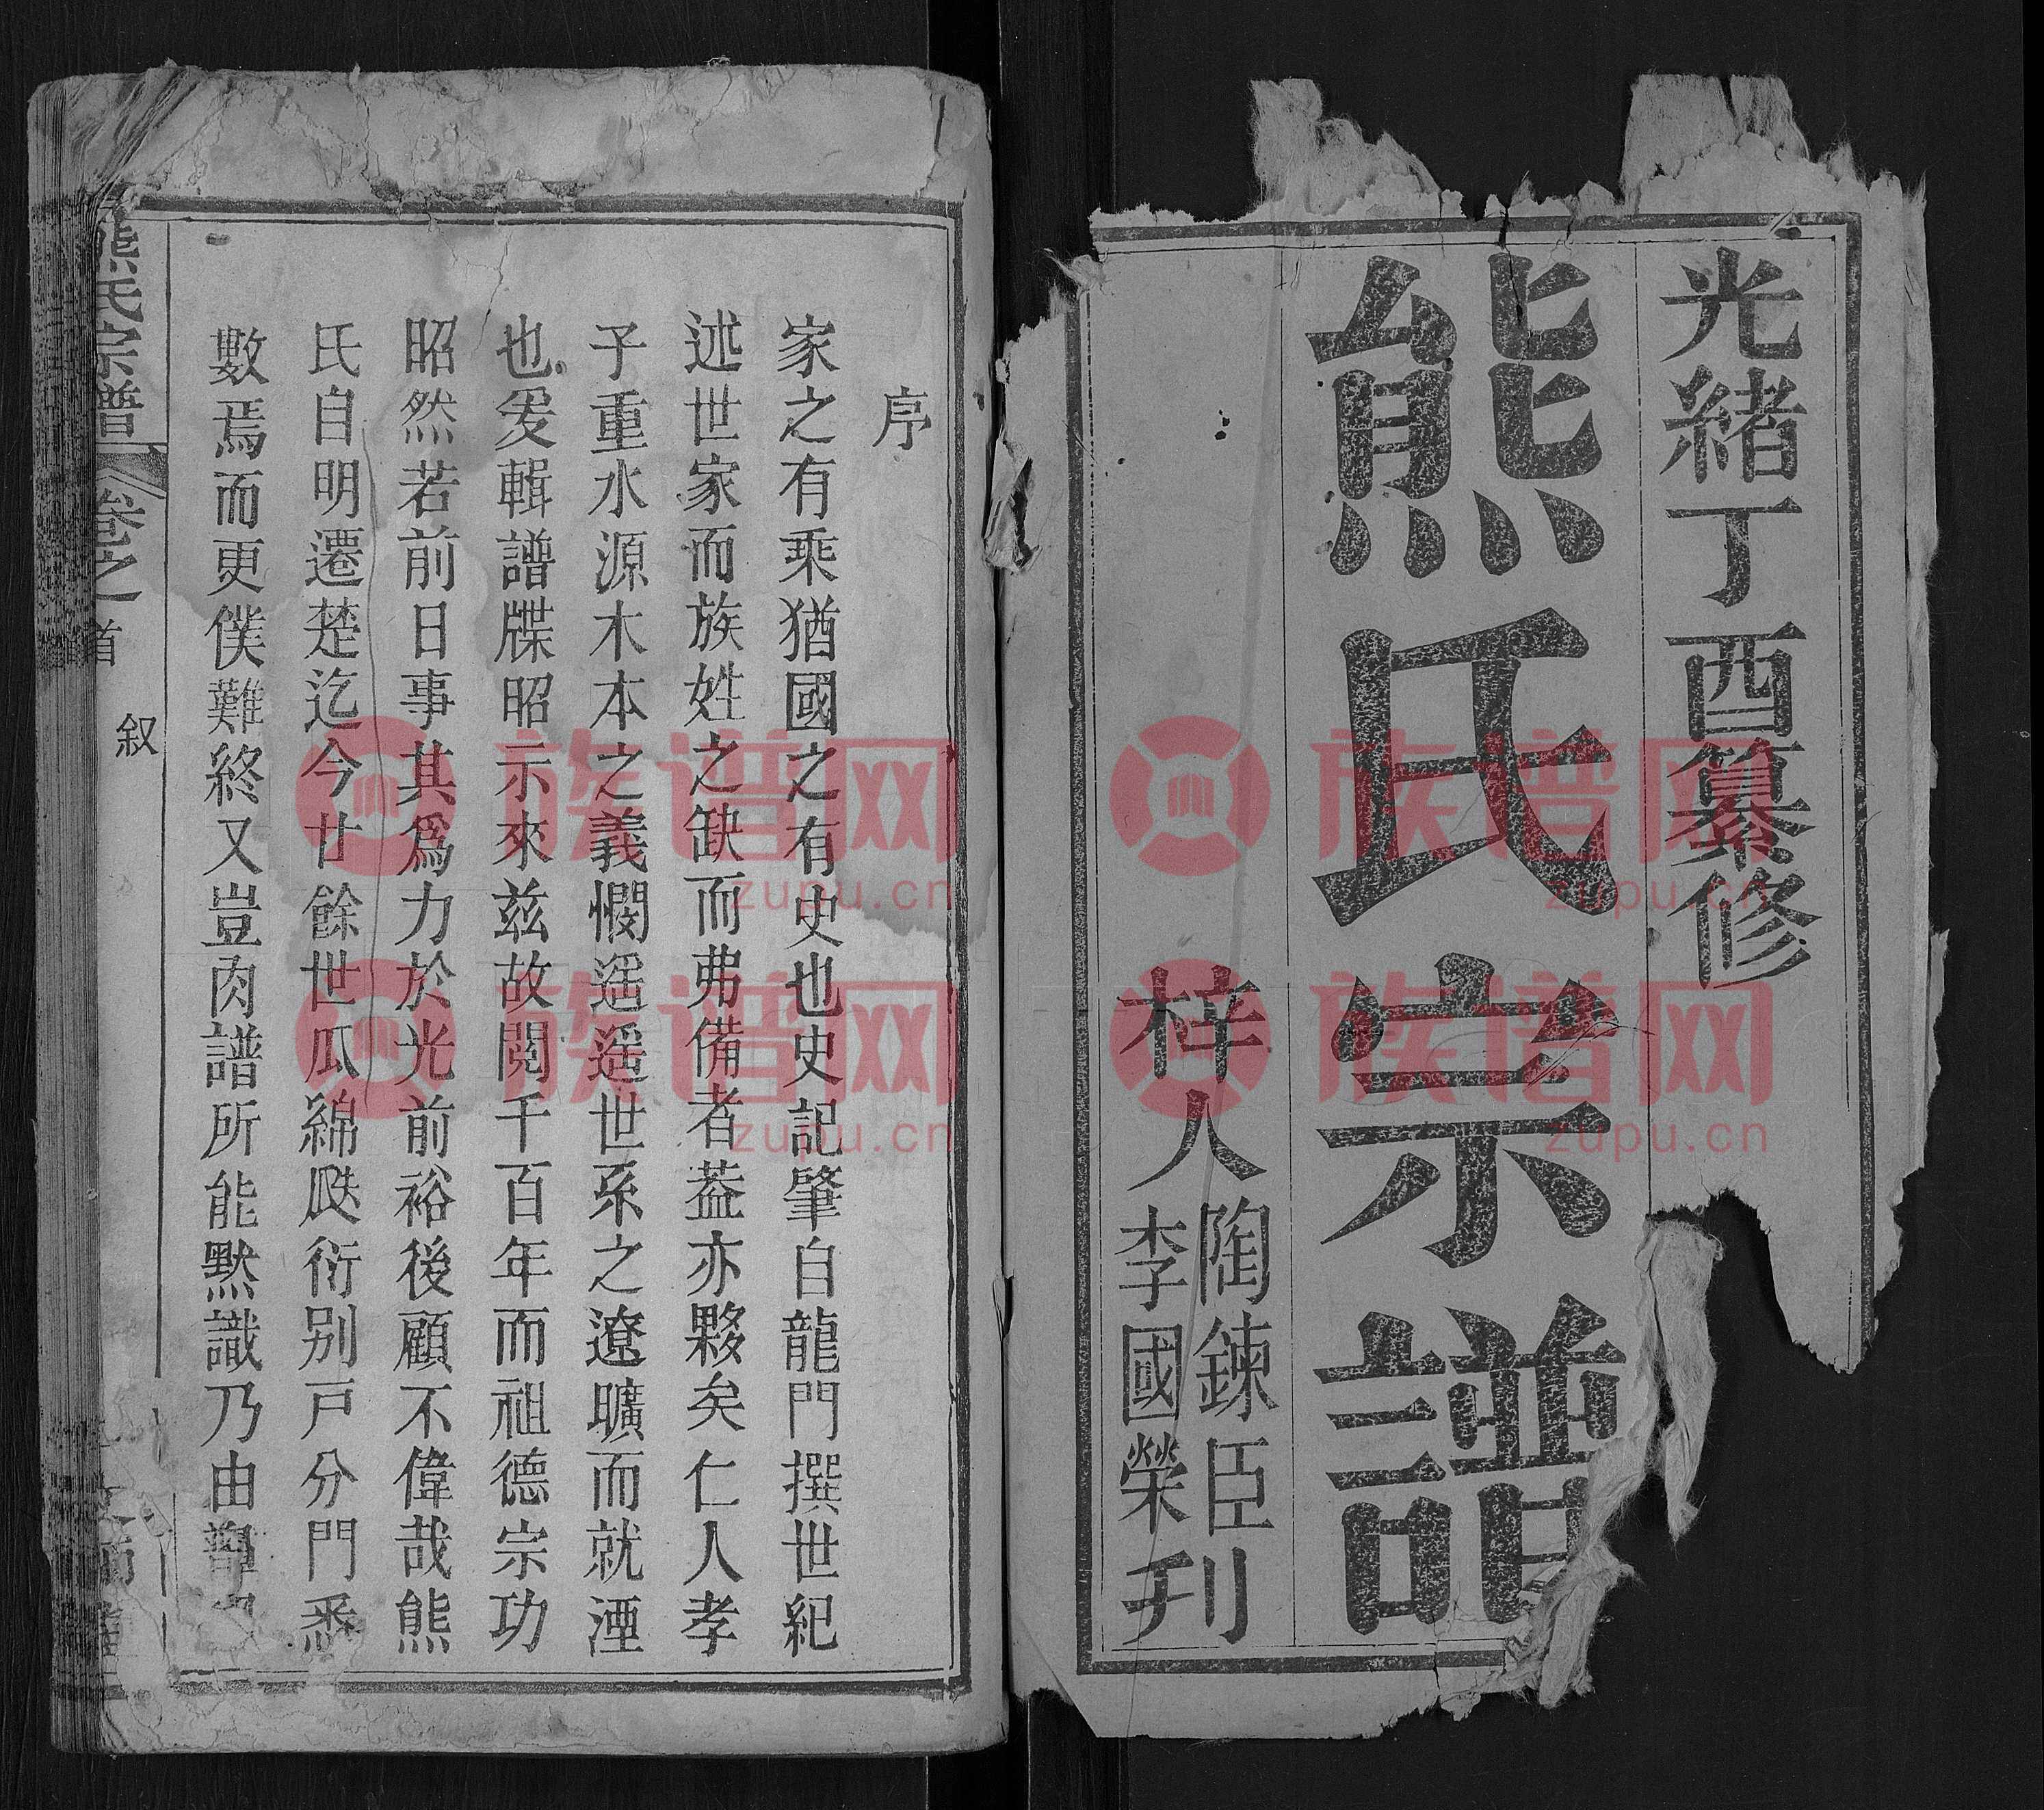 光緒丁酉纂修
熊氏宗譜
梓人
陶鍊臣
李國榮
刋
序
家之有乘猶國之有史也史記肇自龍門撰世紀
述世家而族姓之缺而弗備者葢亦夥矣仁人孝
子重水源木本之義憫遥遥世系之遼曠而就湮
也爰輯譜牒昭示來兹故閱千百年而祖德宗功
昭然若前日事其爲力於光前裕後顧不偉哉熊
氏自明遷楚迄今廿餘世瓜綿瓞衍别戸分門悉
數焉而更僕難終又豈肉譜所能默識乃由
熊氏宗譜
卷之首
叙
族谱网
zupu.cn
族谱网
zupu.cn
族谱网
zupu.cn
族谱网
zupu.cn